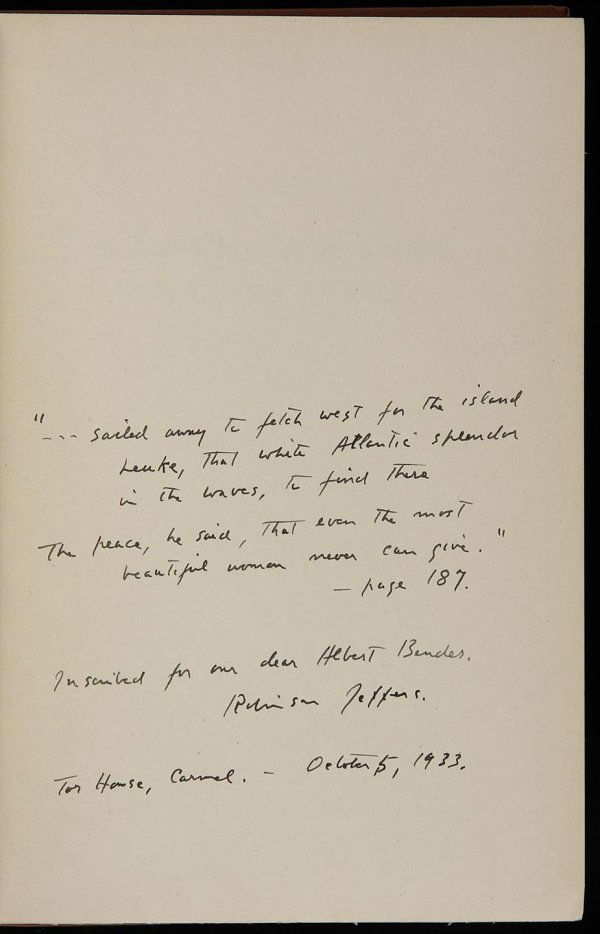 "--- sailed away to fetch west for the island
Leuke, that white Atlantic splendor
in the waves, to find there
The peace, he said, that even the most
beautiful woman never can give."
— page 187.
Inscribed for our dear Albert Bender.
Robinson Jeffers.
Tor House, Carmel. — October 5, 1933.